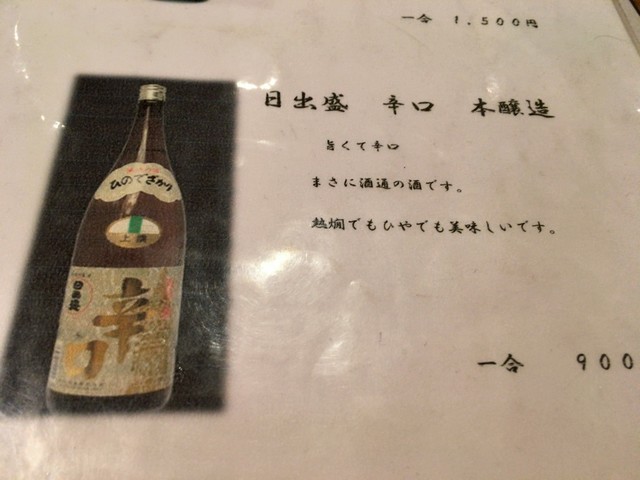 一合 1,500円
日出盛 辛口 本醸造
旨くて辛口
まさに酒通の酒です。
熱燗でもひやでも美味しいです。
一合 900
ひのでざかり
上撰
日出盛
辛口